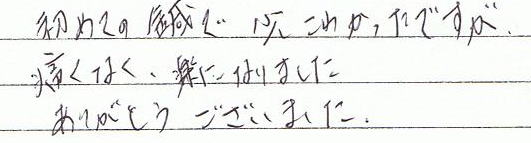 初めての鍼で 少しこわかったですが、
痛くなく、楽になりました
ありがとうございました.